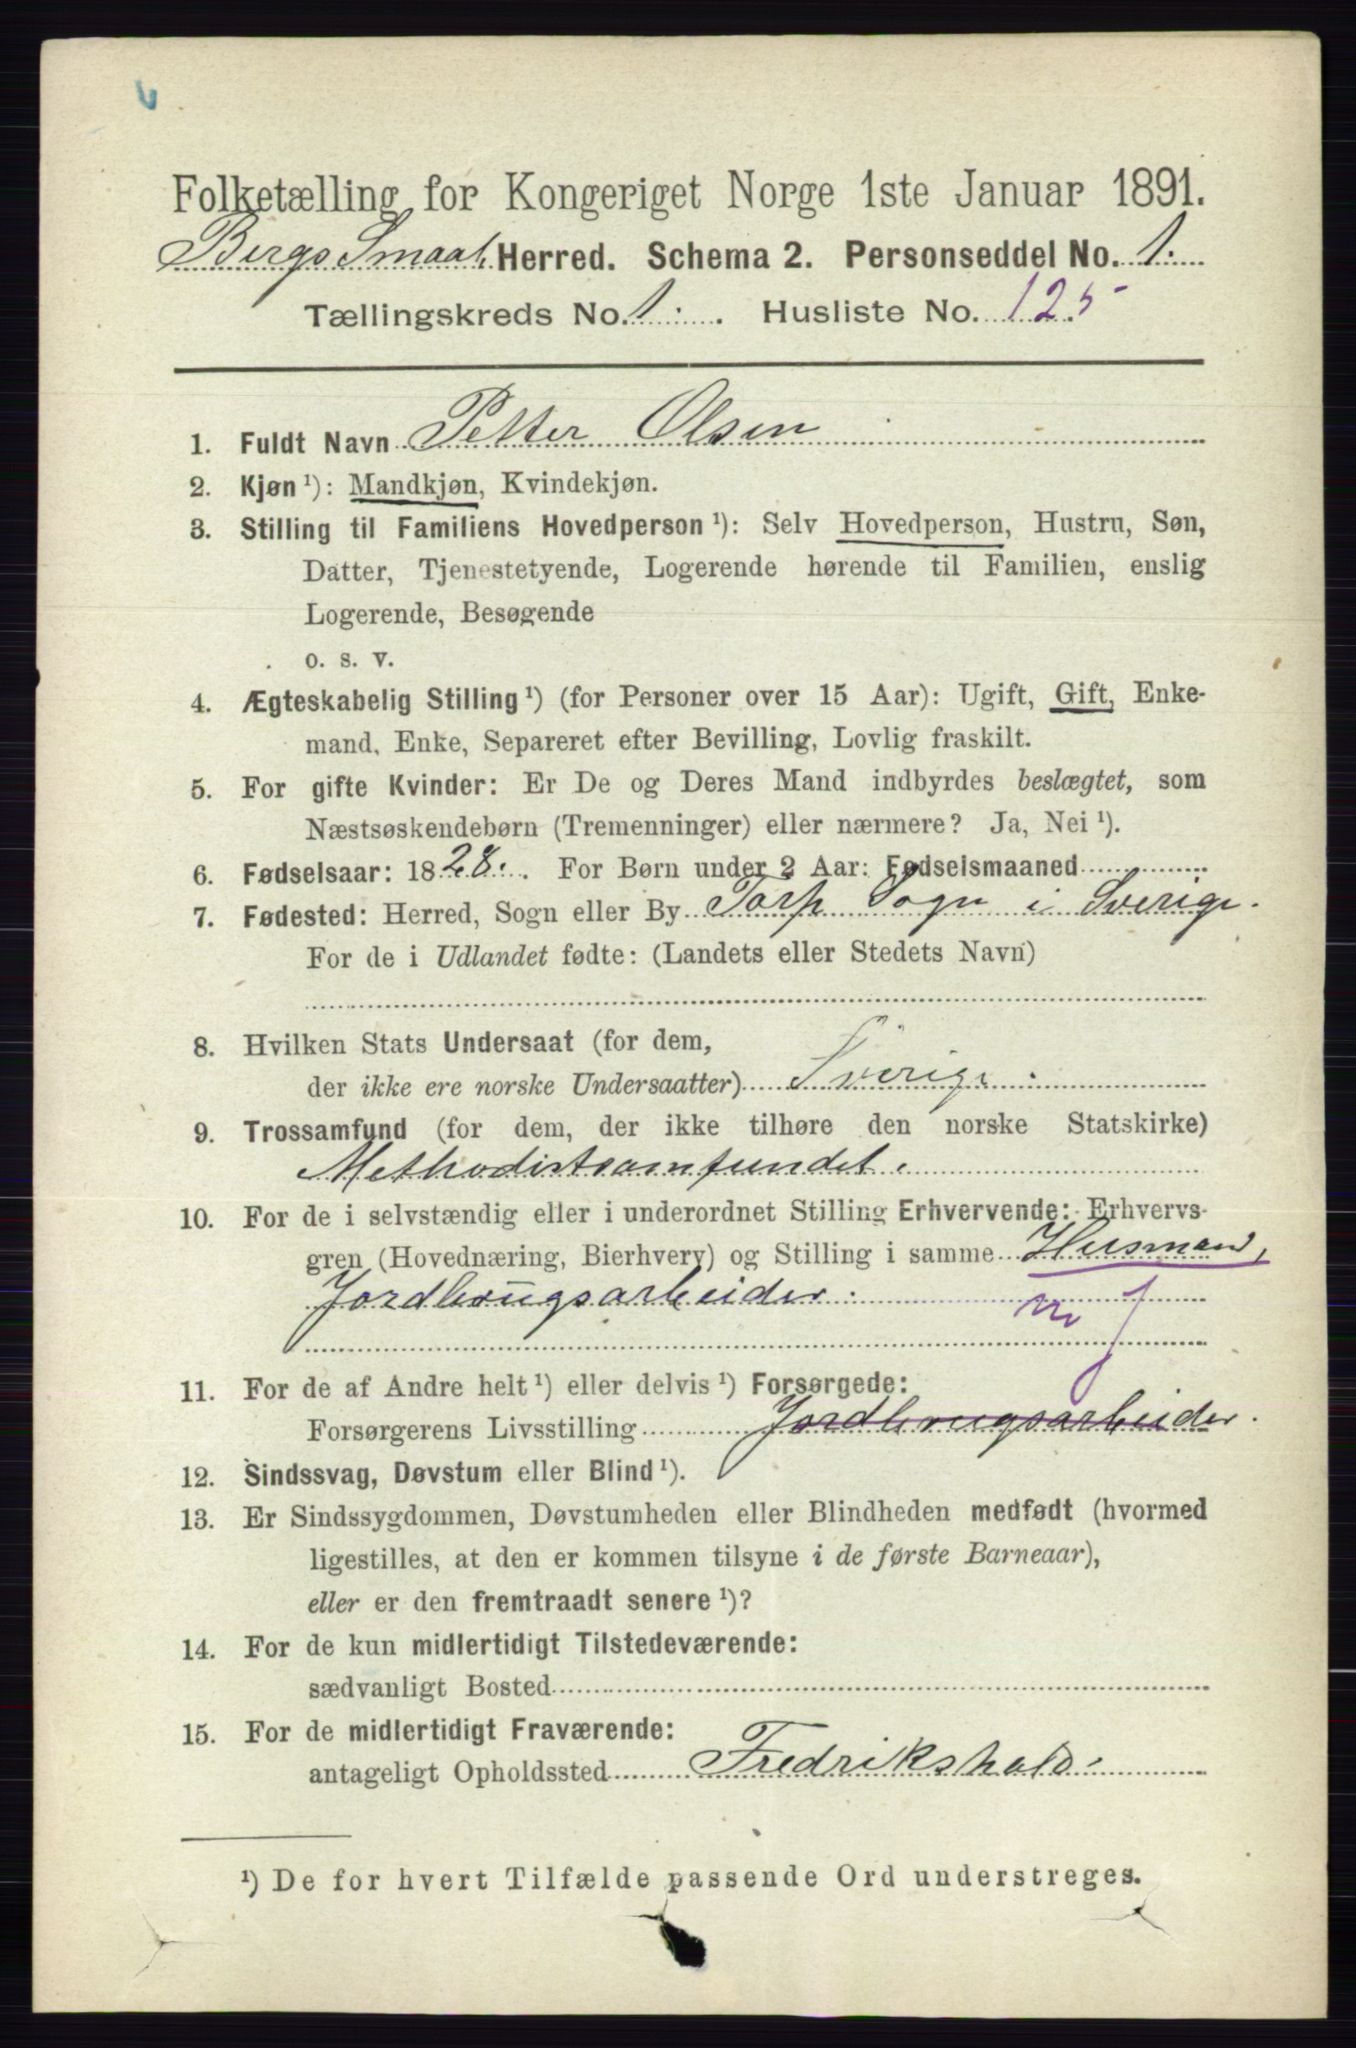 Folketælling for Kongeriget Norge 1ste Januar 1891.
Bergs Smaal. Herred. Schema 2. Personseddel No. 1.
Tællingskreds No. 1. Husliste No. 125
1. Fuldt Navn Petter Olsen
2. Kjøn ¹): Mandkjøn, Kvindekjøn.
3. Stilling til Familiens Hovedperson ¹): Selv Hovedperson, Hustru, Søn,
Datter, Tjenestetyende, Logerende hørende til Familien, enslig
Logerende, Besøgende
o. s. v.
4. Ægteskabelig Stilling ¹) (for Personer over 15 Aar): Ugift, Gift, Enke-
mand, Enke, Separeret efter Bevilling, Lovlig fraskilt.
5. For gifte Kvinder: Er De og Deres Mand indbyrdes beslægtet, som
Næstsøskendebørn (Tremenninger) eller nærmere? Ja, Nei ¹).
6. Fødselsaar: 1828. For Børn under 2 Aar: Fødselsmaaned
7. Fødested: Herred, Sogn eller By Torp Sogn i Sverige.
For de i Udlandet fødte: (Landets eller Stedets Navn)
8. Hvilken Stats Undersaat (for dem,
der ikke ere norske Undersaatter) Sverige.
9. Trossamfund (for dem, der ikke tilhøre den norske Statskirke)
Methodistsamfundet.
10. For de i selvstændig eller i underordnet Stilling Erhvervende: Erhvervs-
gren (Hovednæring, Bierhverv) og Stilling i samme Husmand,
Jordbrugsarbeider.
11. For de af Andre helt ¹) eller delvis ¹) Forsørgede:
Forsørgerens Livsstilling Jordbrugsarbeider.
12. Sindssvag, Døvstum eller Blind ¹).
13. Er Sindssygdommen, Døvstumheden eller Blindheden medfødt (hvormed
ligestilles, at den er kommen tilsyne i de første Barneaar),
eller er den fremtraadt senere ¹)?
14. For de kun midlertidigt Tilstedeværende:
sædvanligt Bosted
15. For de midlertidigt Fraværende:
antageligt Opholdssted Fredrikshald.
¹) De for hvert Tilfælde passende Ord understreges.